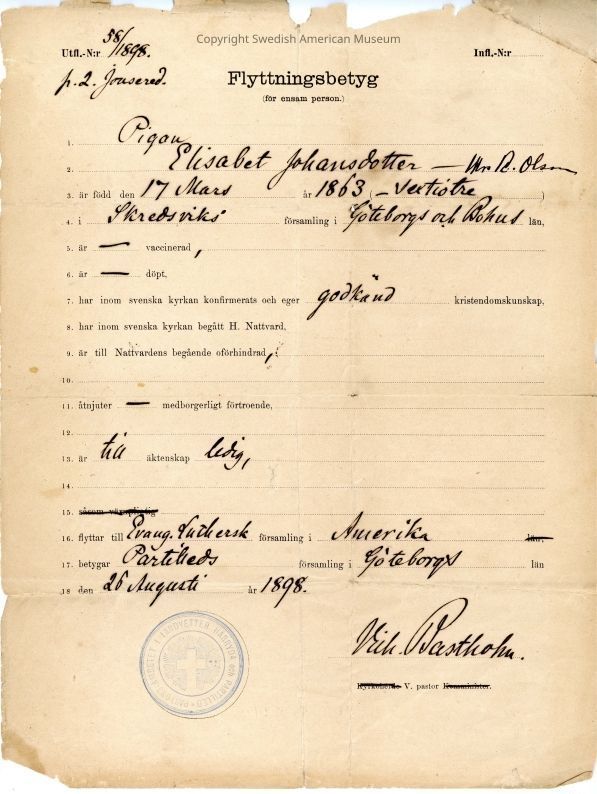 Copyright Swedish American Museum
Utfl.-N:r 58/1898. Infl.-N:r
p. 2. Jonsered.
Flyttningsbetyg
(för ensam person.)
1. Pigan
2. Elisabet Johansdotter — Olson
3. är född den 17 Mars år 1863 (— sextiotre )
4. i Skredsviks församling i Göteborgs och Bohus län,
5. är — vaccinerad,
6. är — döpt,
7. har inom svenska kyrkan konfirmerats och eger godkänd kristendomskunskap,
8. har inom svenska kyrkan begått H. Nattvard,
9. är till Nattvardens begående oförhindrad,
10.
11. åtnjuter — medborgerligt förtroende,
12.
13. är till äktenskap ledig,
14.
15. såsom värnpligtig
16. flyttar till Evang. Luthersk församling i Amerika län,
17. betygar Partilleds församling i Göteborgs län
18 den 26 Augusti år 1898.
PASTORSEMBETET I LANDVETTER, HÄRRYDA och PARTILLED
Vilh. Bastholm.
Kyrkoherde V. pastor Komminister.